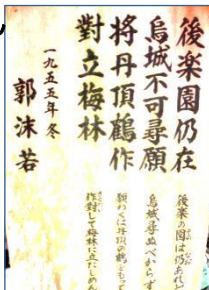 後楽園仍在
烏城不可尋願
将丹頂鶴作
對立梅林
一九五五年冬
郭沫若
後楽の園は仍あれど
烏城尋ぬべからず
願わくは丹頂の鶴をもって
作對して梅林に立たしめん